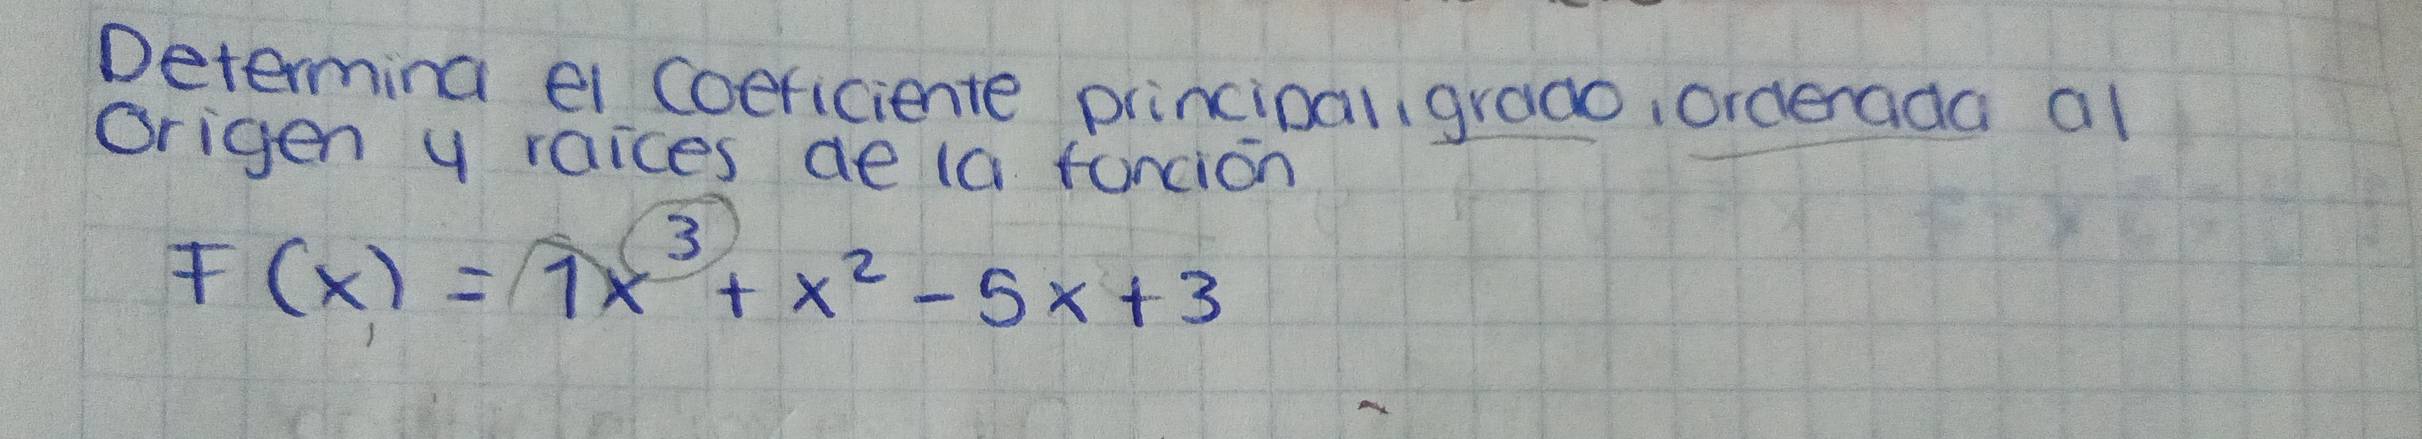 Determina el coeficiente principal, grado, ordenada al
origen y raíces de la función
F(x) = 1x³ + x² - 5x + 3